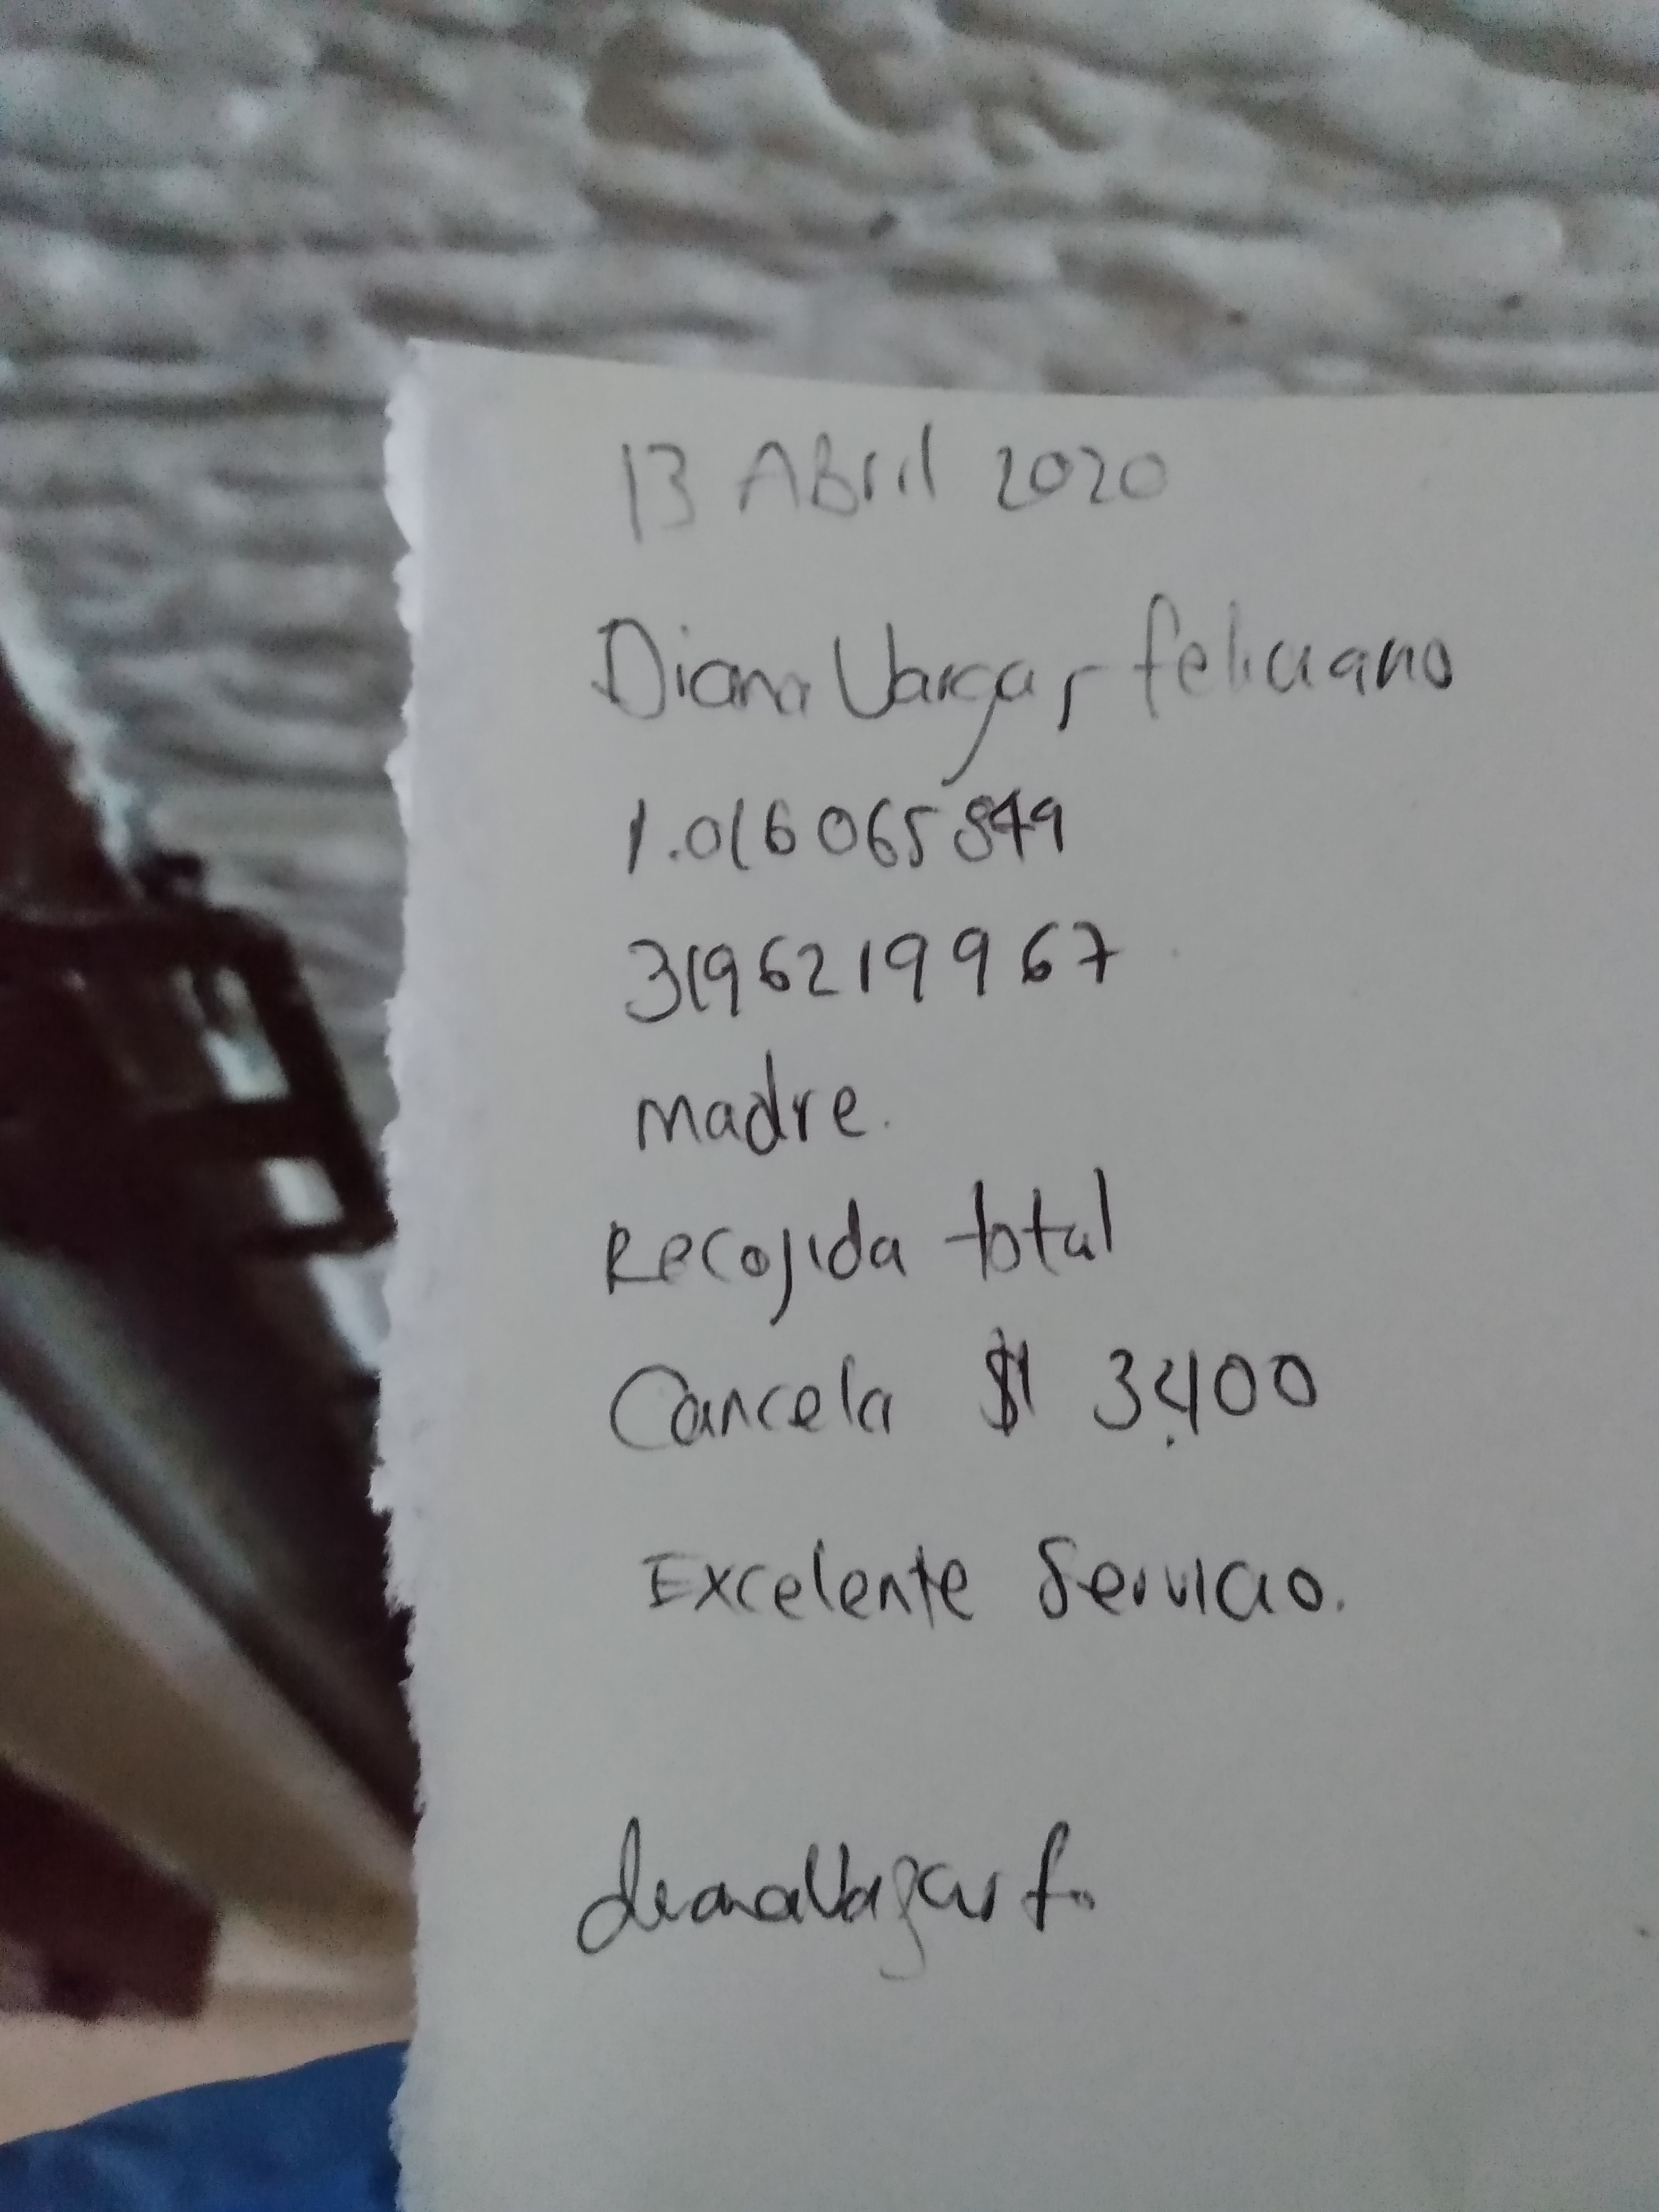 13 Abril 2020
Diana Vargas feliciano
1.016065849
3196219967
madre.
Recojida total
Cancela $ 3.400
Excelente Servicio.
diana Vargas f.